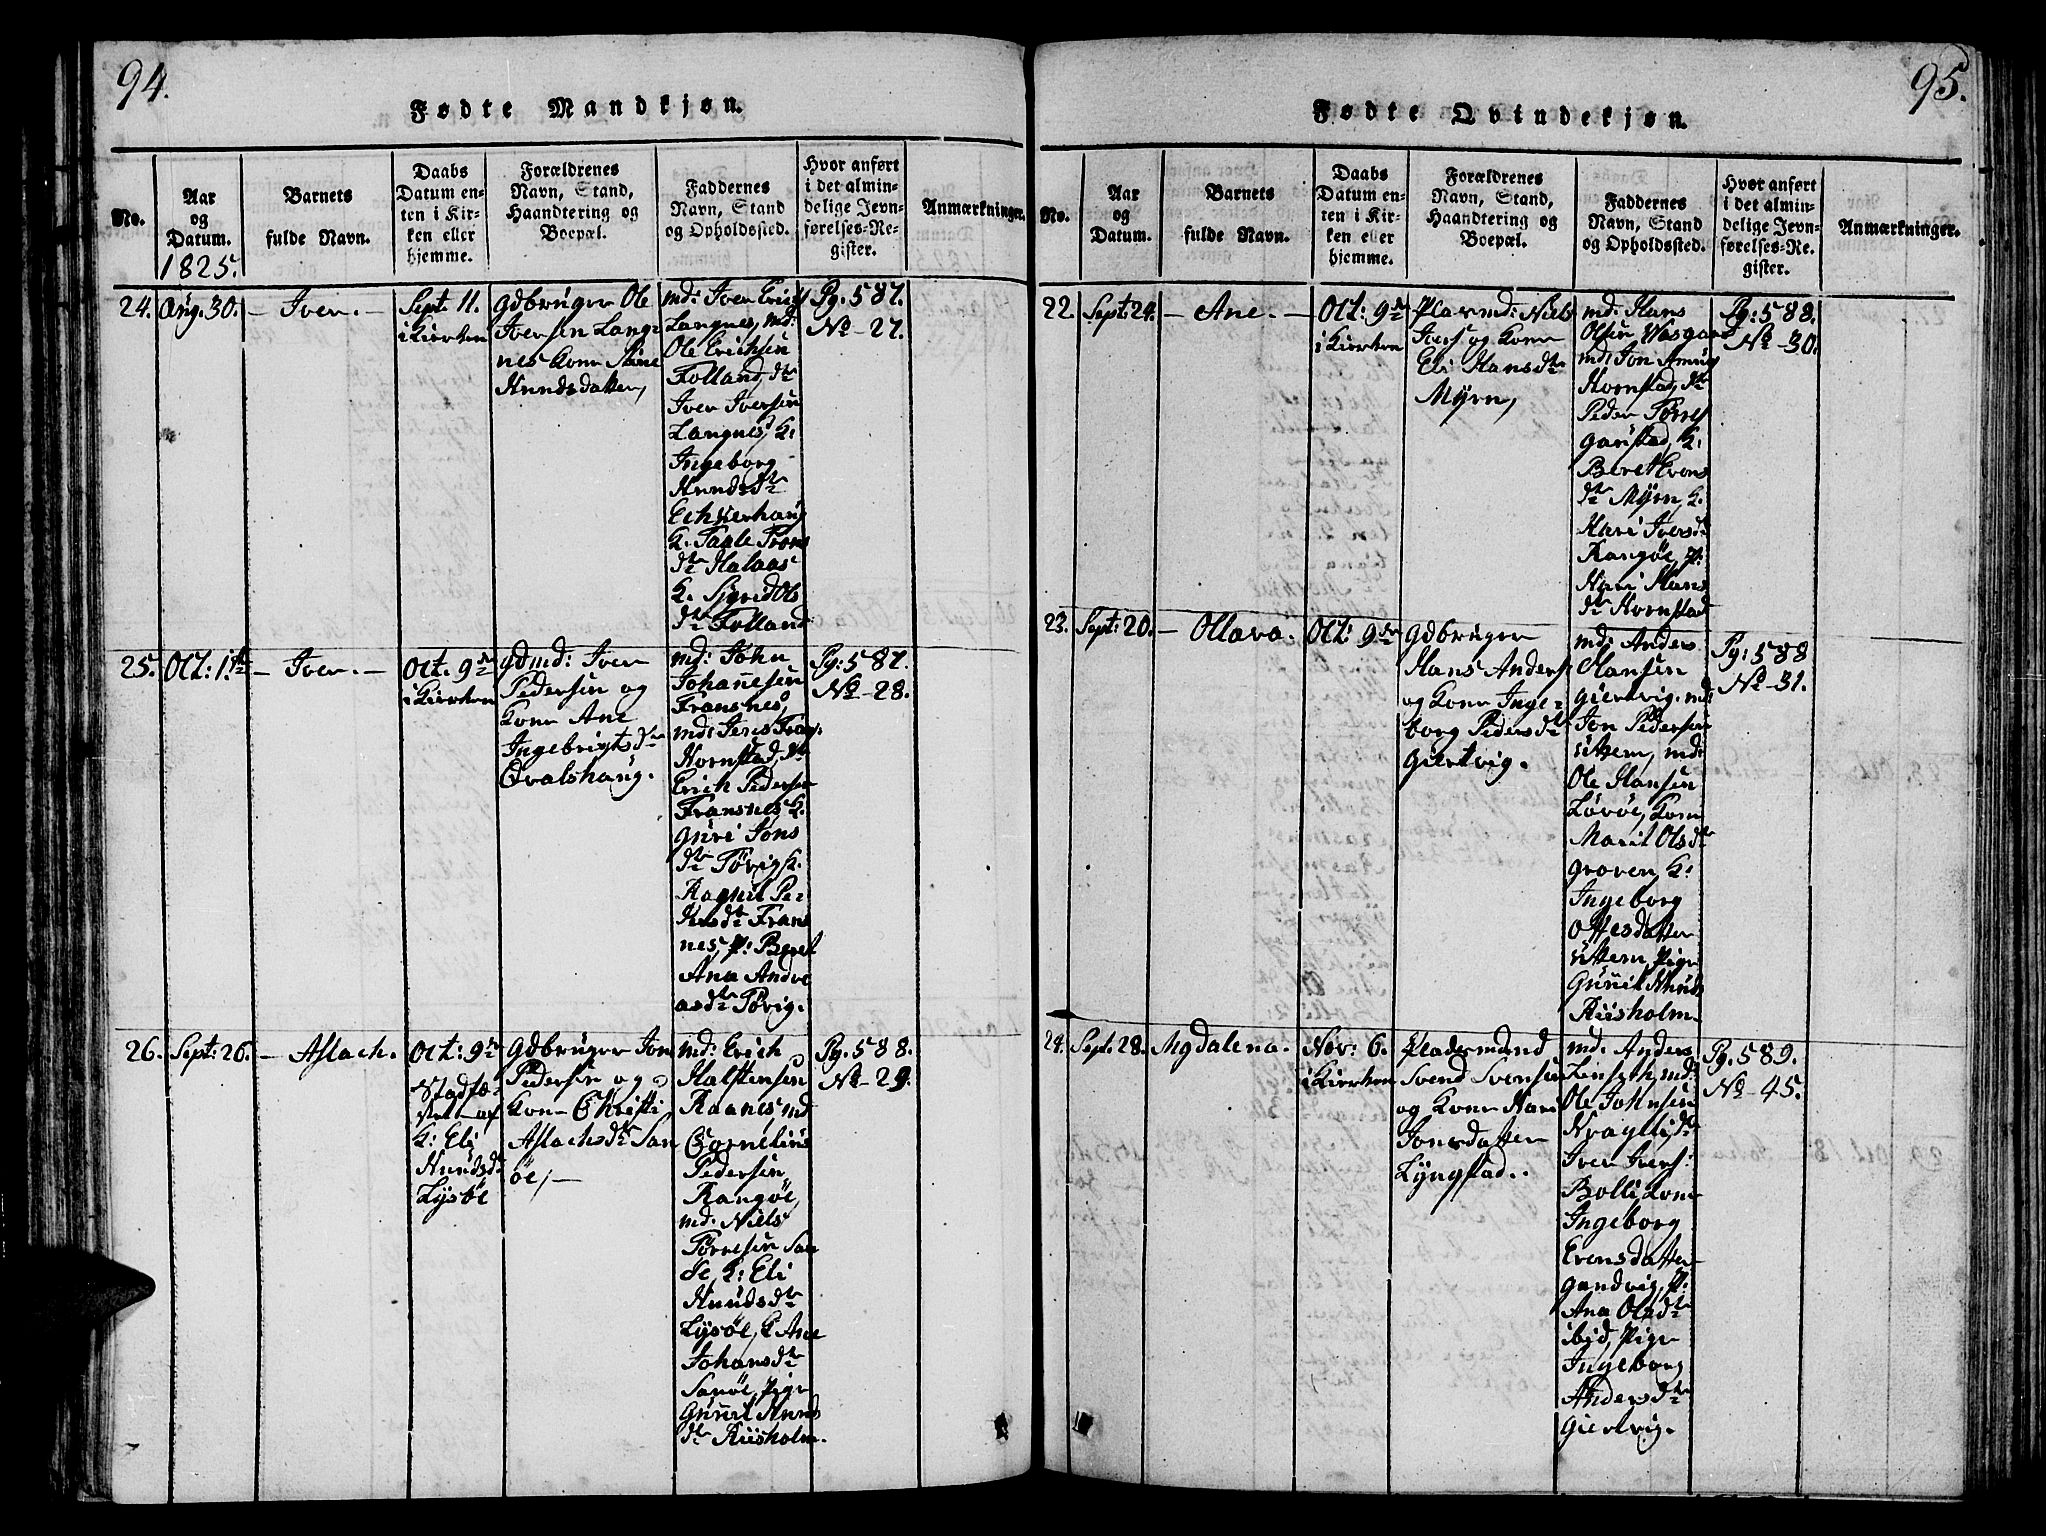 94.
Fødte Mandkjøn.
No.
Aar
og
Datum.
1825.
Barnets
fulde Navn.
Daabs
Datum en-
ten i Kir-
ken eller
hjemme.
Forældrenes
Navn, Stand,
Haandtering og
Boepæl.
Faddernes
Navn, Stand
og Opholdssted.
Hvor anført
i det almin-
delige Jevn-
førelses-Re-
gister.
Anmærkninger.
24.
Aug. 30.
– Iver. –
Sept. 11.
i Kirken
Gdbruger Ole
Iversen Lang-
nes Kone
Knudsdatter,
md: Iver Erichs
Langnes, md:
Ole Erichsen
Folland, dtr
Iver Iversen
Langnes, K:
Ingeborg
Knudsdtr
K. Paale
dtr Halaas
K. Sigrid Ols
dtr Folland
Pg. 587.
No – 27.
25.
Oct: 1ste
– Iver. –
Oct. 9de
i Kirken
gdmd: Iver
Pedersen og
Kone Ane
Ingebrigtsdtr
Ovalshaug.
md: John
Johanesen
Fransnes,
md: Jens
Hornstad, dtr
Erich Pedersen
Fransnes, K.
Guri Jons
dtr Tövig, K.
Ragnil Pe-
dersdtr Frans
nes, P: Beret
Ana Andre
asdtr Tövig.
Pg: 587.
No – 28.
26.
Sept: 26.
– Aslach.
Oct: 9de
Stadfæ-
stet af
K: Eli
Knudsdtr
Lysöe
Gdbruger Jon
Pedersen og
Kone Christi
Aslachsdtr San
öe, –
md: Erich
Halstensen
Raanes, md
Cornelius
Pedersen
Rangöe,
md. Niels
Törresen San
öe, K: Eli
Knudsdtr
Lysöe, K Ane
Johansdtr
Sanöe, Pige
Gunil Knuds
dtr Riisholm.
Pg. 588.
No – 29.
95.
Fødte Qvindekjøn.
No.
Aar
og
Datum.
Barnets
fulde Navn.
Daabs
Datum en-
ten i Kir-
ken eller
hjemme.
Forældrenes
Navn, Stand,
Haandtering og
Boepæl.
Faddernes
Navn, Stand
og Opholdssted.
Hvor anført
i det almin-
delige Jevn-
førelses-Re-
gister.
Anmærkninger.
22.
Sept: 24.
– Ane. –
Oct: 9de
i Kirken
Pladsmd: Niels
Ivers og Kone
Eli Hansdtr
Myrn,
md: Hans
Olsen Vasgaard
md: Jon Amus
Hornstad, dtr
Peder Törres
Garistad, K:
Beret Evens
dtr Myrn, K.
Mari Iversdtr
Rangöe, P:
Mari Hans
dtr Hornstad
Pg: 588.
No – 30.
23.
Sept: 20.
– Ollava.
Oct: 9de
Gdbruger
Hans Anders
og Kone Inge-
borg Pedersdtr
Giertvig.
md: Anders
Hansen
Giertvig, md
Jon Pedersen
Uttern, md:
Ole Hansen
Lövöe, Kone
Marit Olsdtr
Groven, K:
Ingeborg
Ottesdatter
Uttern, Pige
Gunil Knuds
Riisholm.
Pg: 588
No – 31.
24.
Sept. 28.
Magdalena.
Nov: 6.
i Kirken
Pladsmand
Svend Svensen
og Kone Mari
Jonsdatter
Lyngstad.
md. Anders
Janseth, md:
Ole Johnsen
Iver Ivers:
Bolli, Kone
Ingeborg
Evensdatter
Gandvig, P:
Ana Olsdtr
ibid, Pige
Ingeborg
Andersdtr
Giertvig.
Pg. 589.
No – 45.